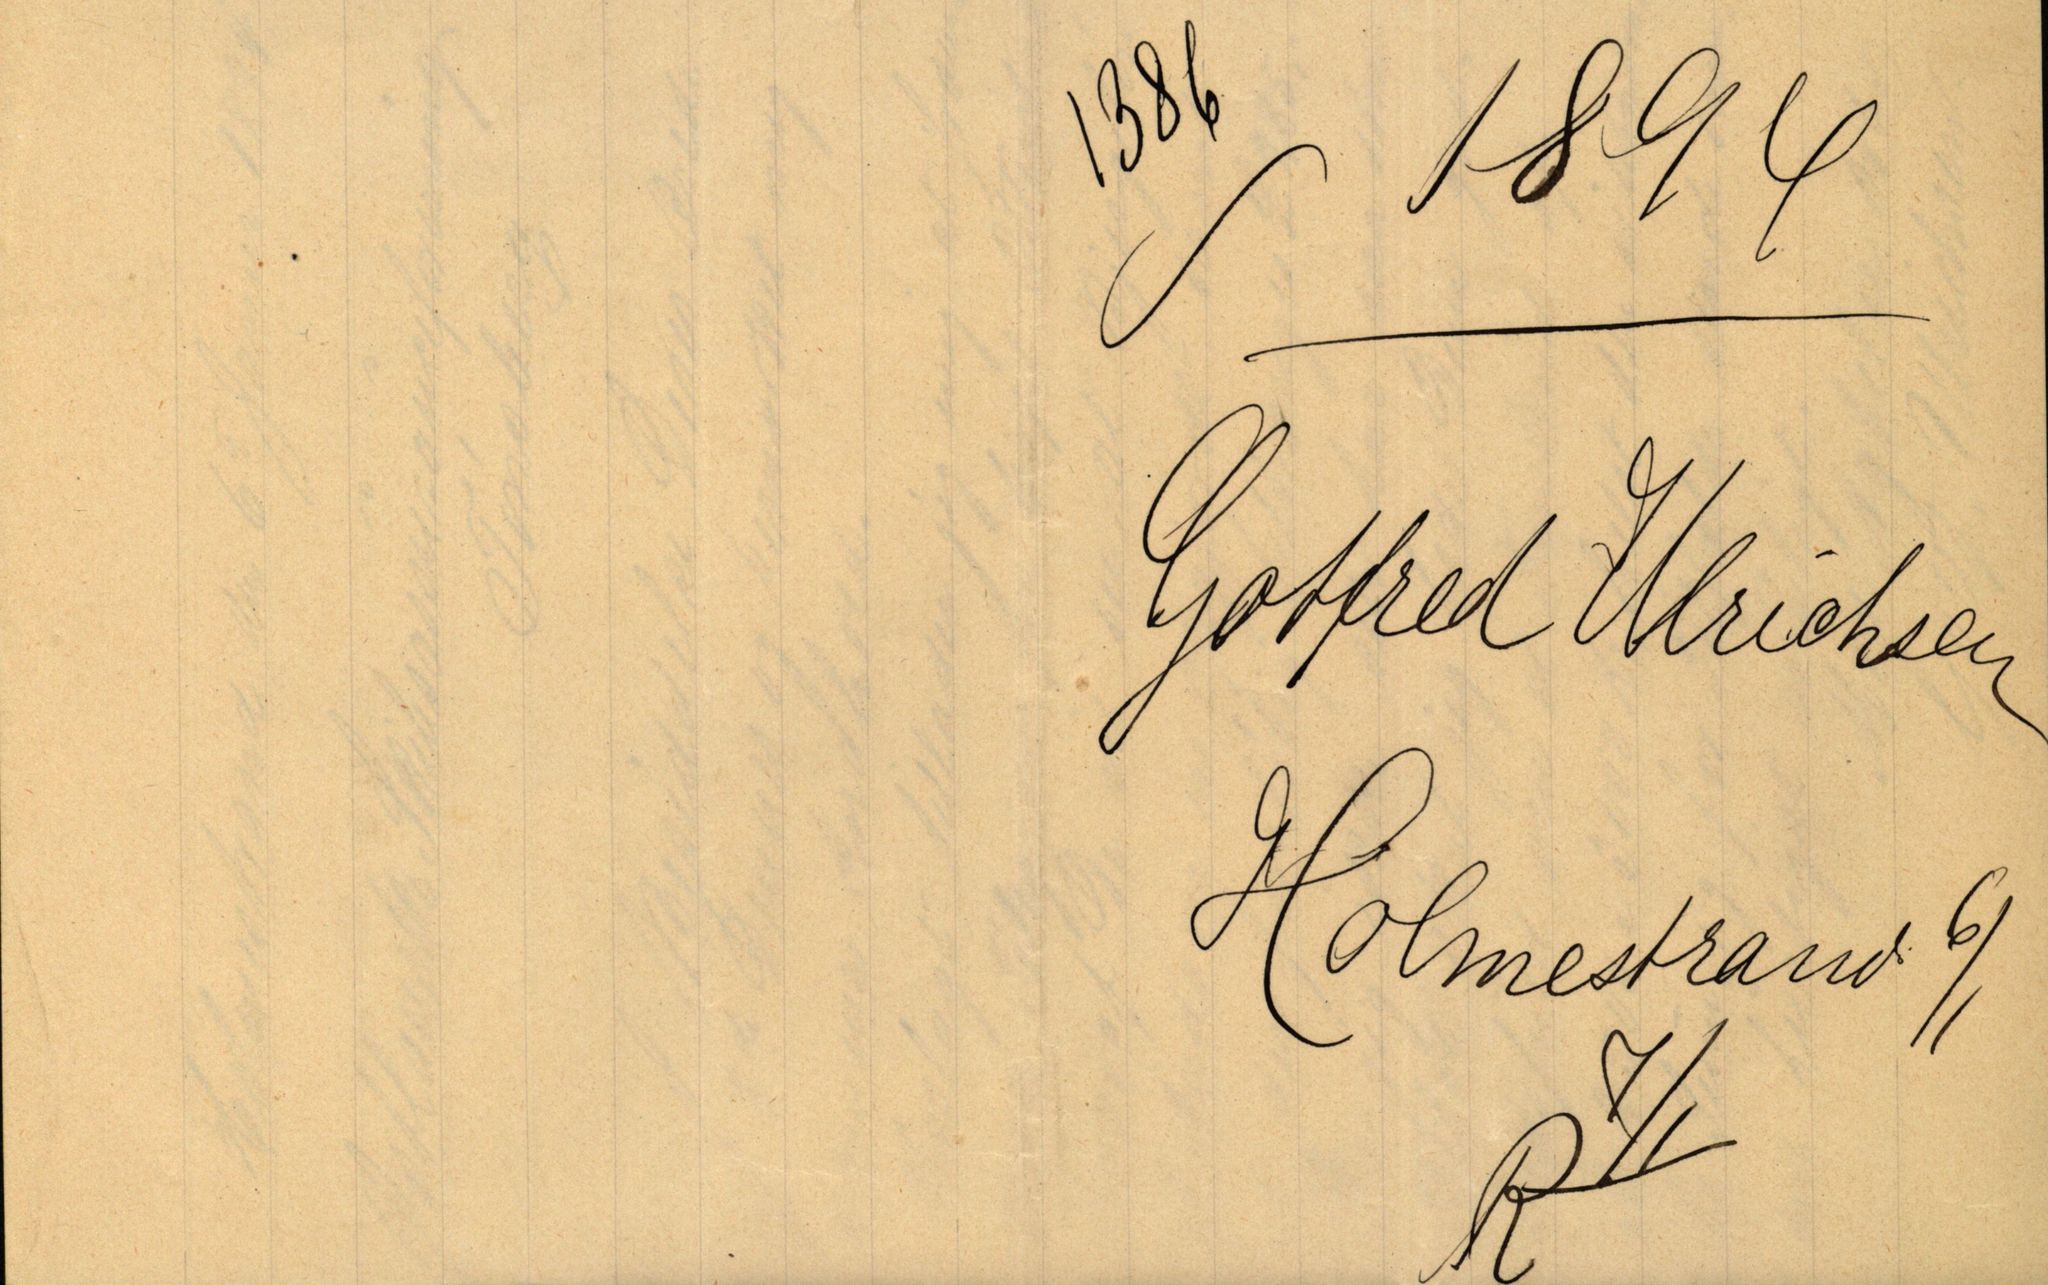 1386
1894
Gotfred Ulrichsen
Holmestrand 6/1
R 7/1